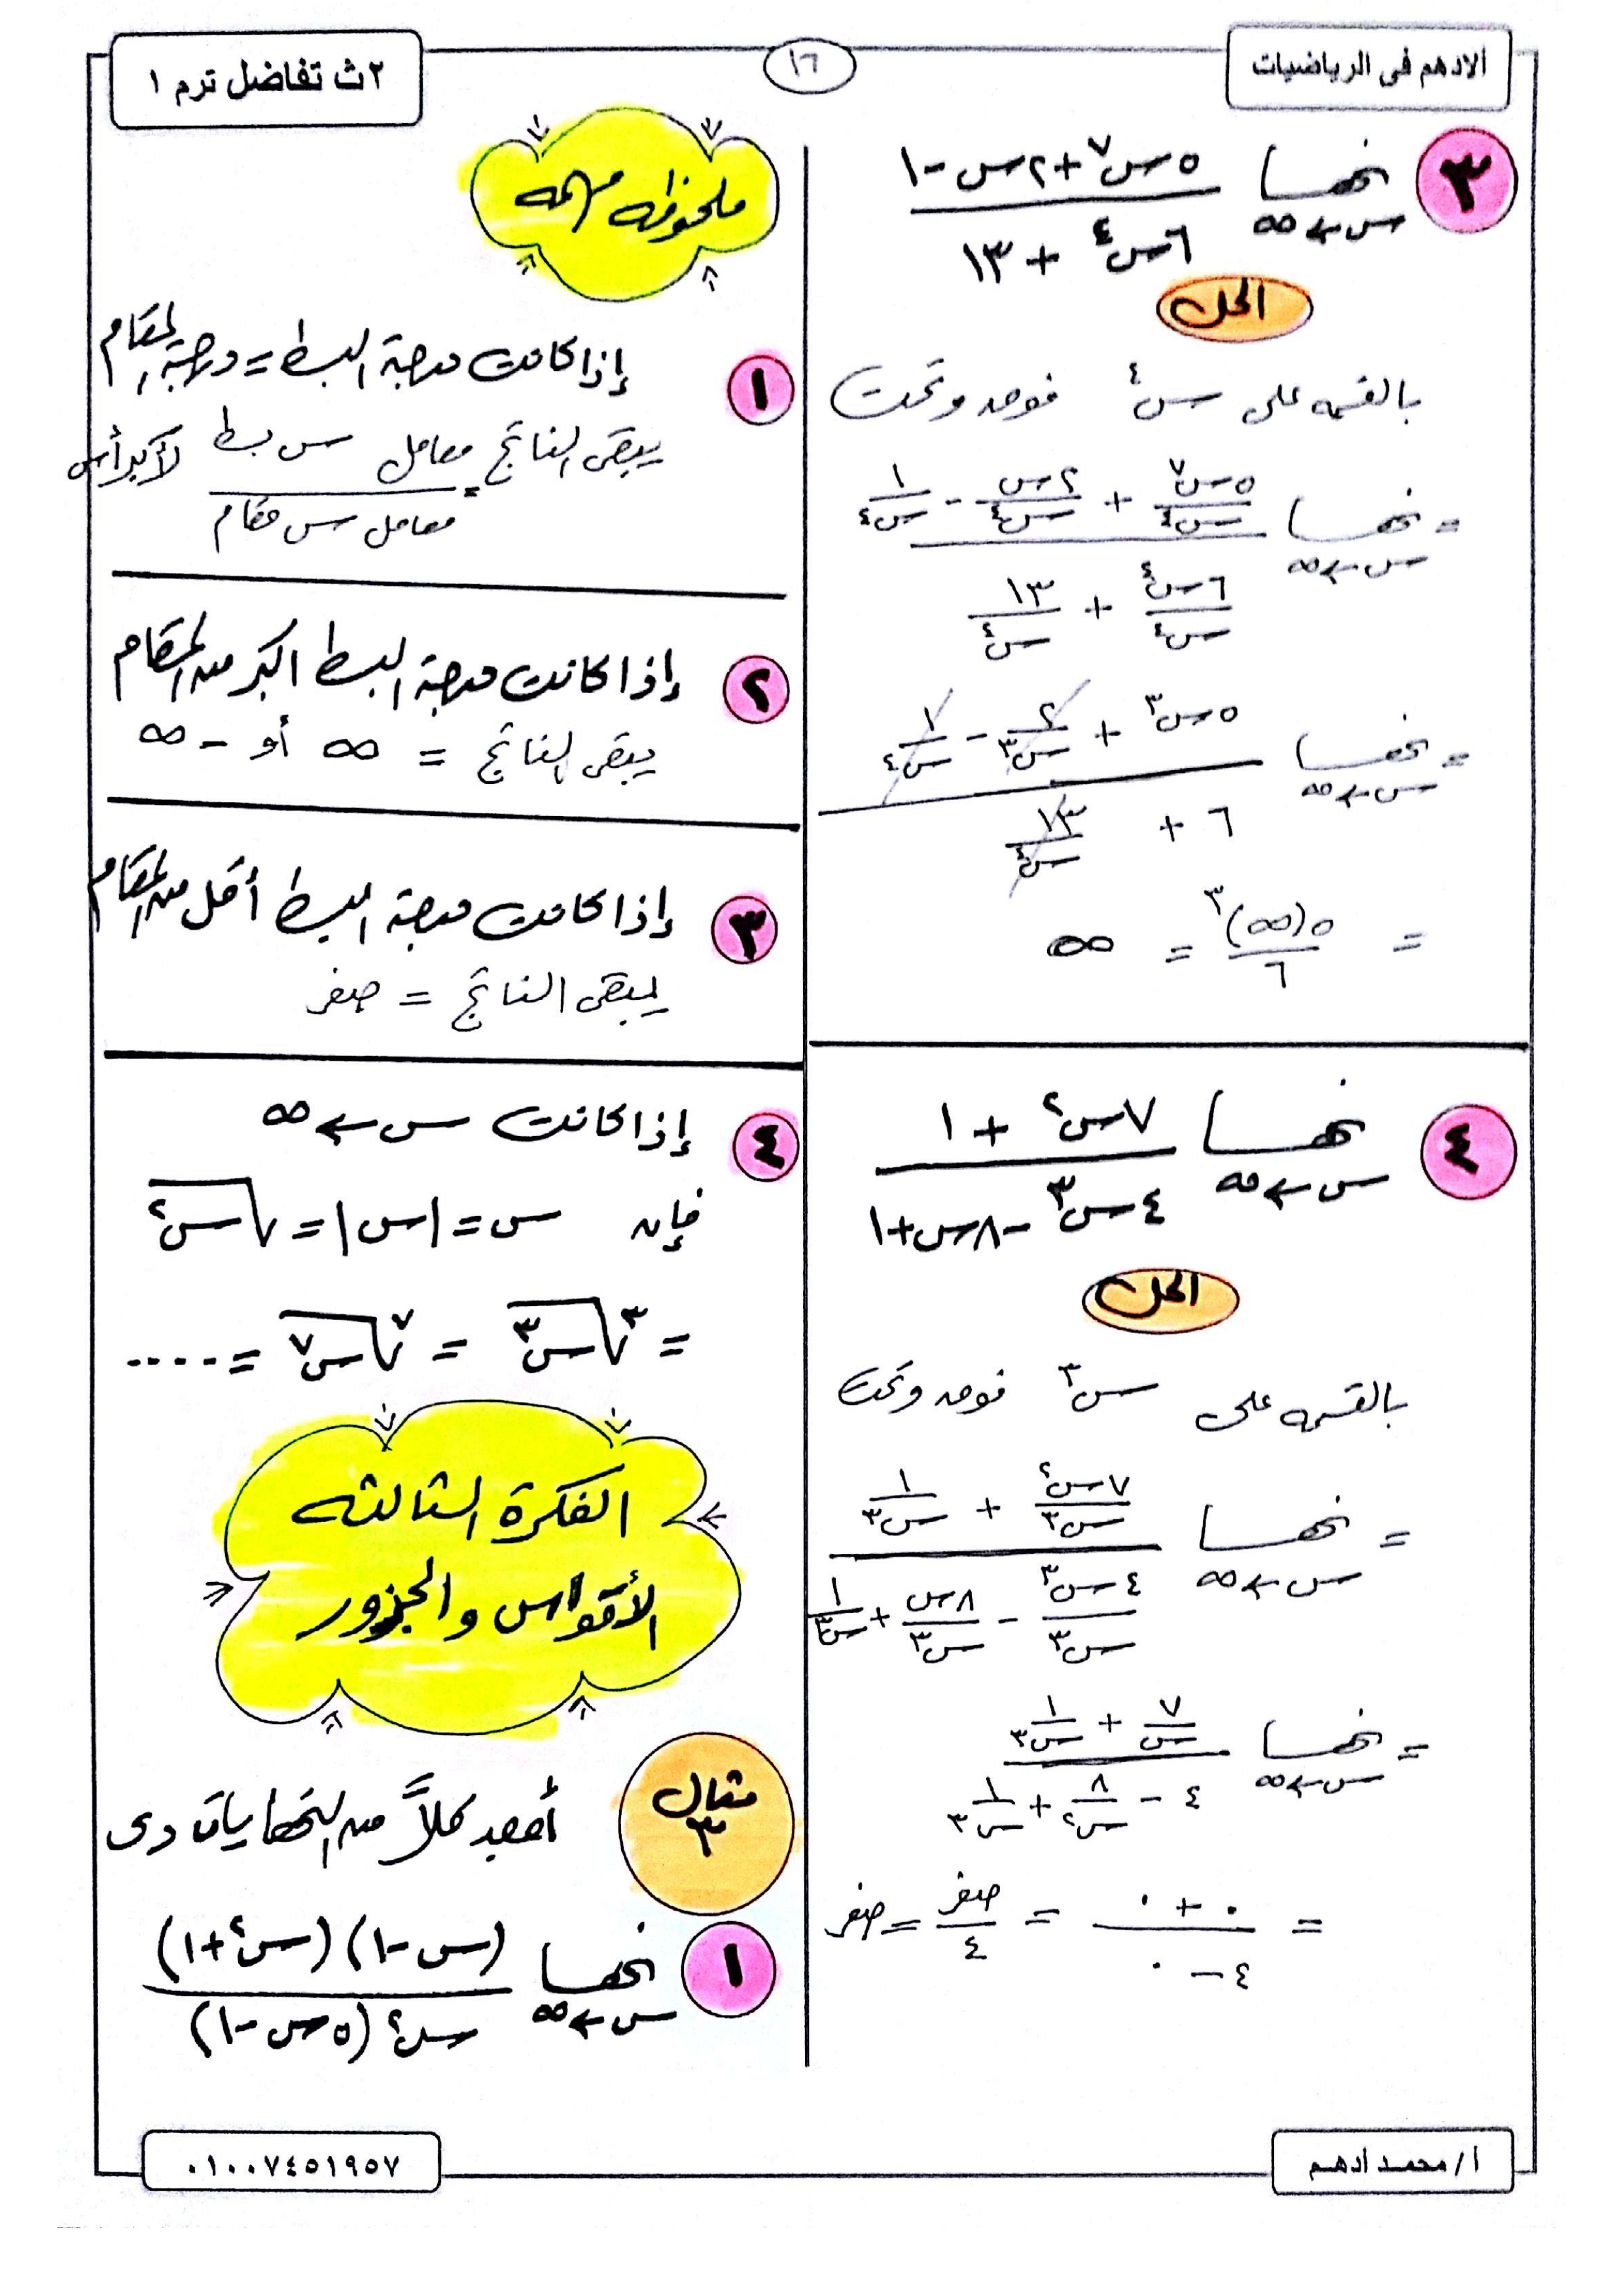 الادهم فى الرياضيات
١٦
٢ث تفاضل ترم ١
٣ نهــا س←∞ (٥س^٧ + ٢س - ١) / (٦س^٤ + ١٣)
الحل
بالقسمه على س^٤ فوق وتحت
= نهــا س←∞ (٥س^٧/س^٤ + ٢س/س^٤ - ١/س^٤) / (٦س^٤/س^٤ + ١٣/س^٤)
= نهــا س←∞ (٥س^٣ + ٢/س^٣ - ١/س^٤) / (٦ + ١٣/س^٤)
= ٥(∞)^٣ / ٦ = ∞
٤ نهــا س←∞ (٧س^٢ + ١) / (٤س^٣ - ٨س + ١)
الحل
بالقسمه على س^٣ فوق وتحت
= نهــا س←∞ (٧س^٢/س^٣ + ١/س^٣) / (٤س^٣/س^٣ - ٨س/س^٣ + ١/س^٣)
= نهــا س←∞ (٧/س + ١/س^٣) / (٤ - ٨/س^٢ + ١/س^٣)
= (٠ + ٠) / (٤ - ٠) = صفر/٤ = صفر
ملحوظه مهمه
١ إذا كانت درجة البسط = درجة المقام
يبقى الناتج = معامل س بسط / معامل س مقام لأكبر أس
٢ إذا كانت درجة البسط اكبر من المقام
يبقى الناتج = ∞ أو -∞
٣ إذا كانت درجة البسط أقل من المقام
يبقى الناتج = صفر
٤ إذا كانت س←∞
فإن س = |س| = √س^٢
= ٣√س^٣ = ٧√س^٧ = ....
الفكرة الثالثه
الأقواس والجزور
مثال ٣
أوجد كلاً من النهايات دى
١ نهــا س←∞ (س - ١)(س^٢ + ١) / س^٢(٥س - ١)
أ/ محمد أدهم
٠١٠٠٧٤٥١٩٥٧